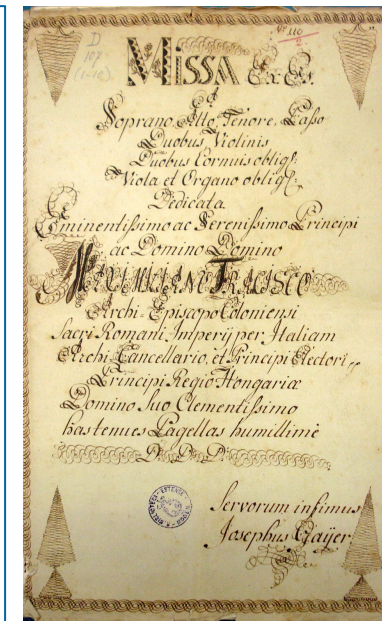 D
107
(1-12)
No 110
2.
Missa Ex Es.
à
Soprano, Alto, Tenore, Basso
Duobus Violinis
Duobus Cornuis obligt:
Viola et Organo obligt:
Dedicata
Eminentissimo ac Serenissimo Principi
ac Domino Domino
MAXIMILIANO FRANCISCO
Archi-Episcopo Coloniensi
Sacri Romani Imperij per Italiam
Archi-Cancellario, et Principi Electori,
Principi Regio Hongariæ
Domino Suo Clementissimo
hastenues Pagellas humillimè
D: D: D:
BIBLIOTECA ESTENSE
MODENA
Servorum infimus
Josephus Gaÿer